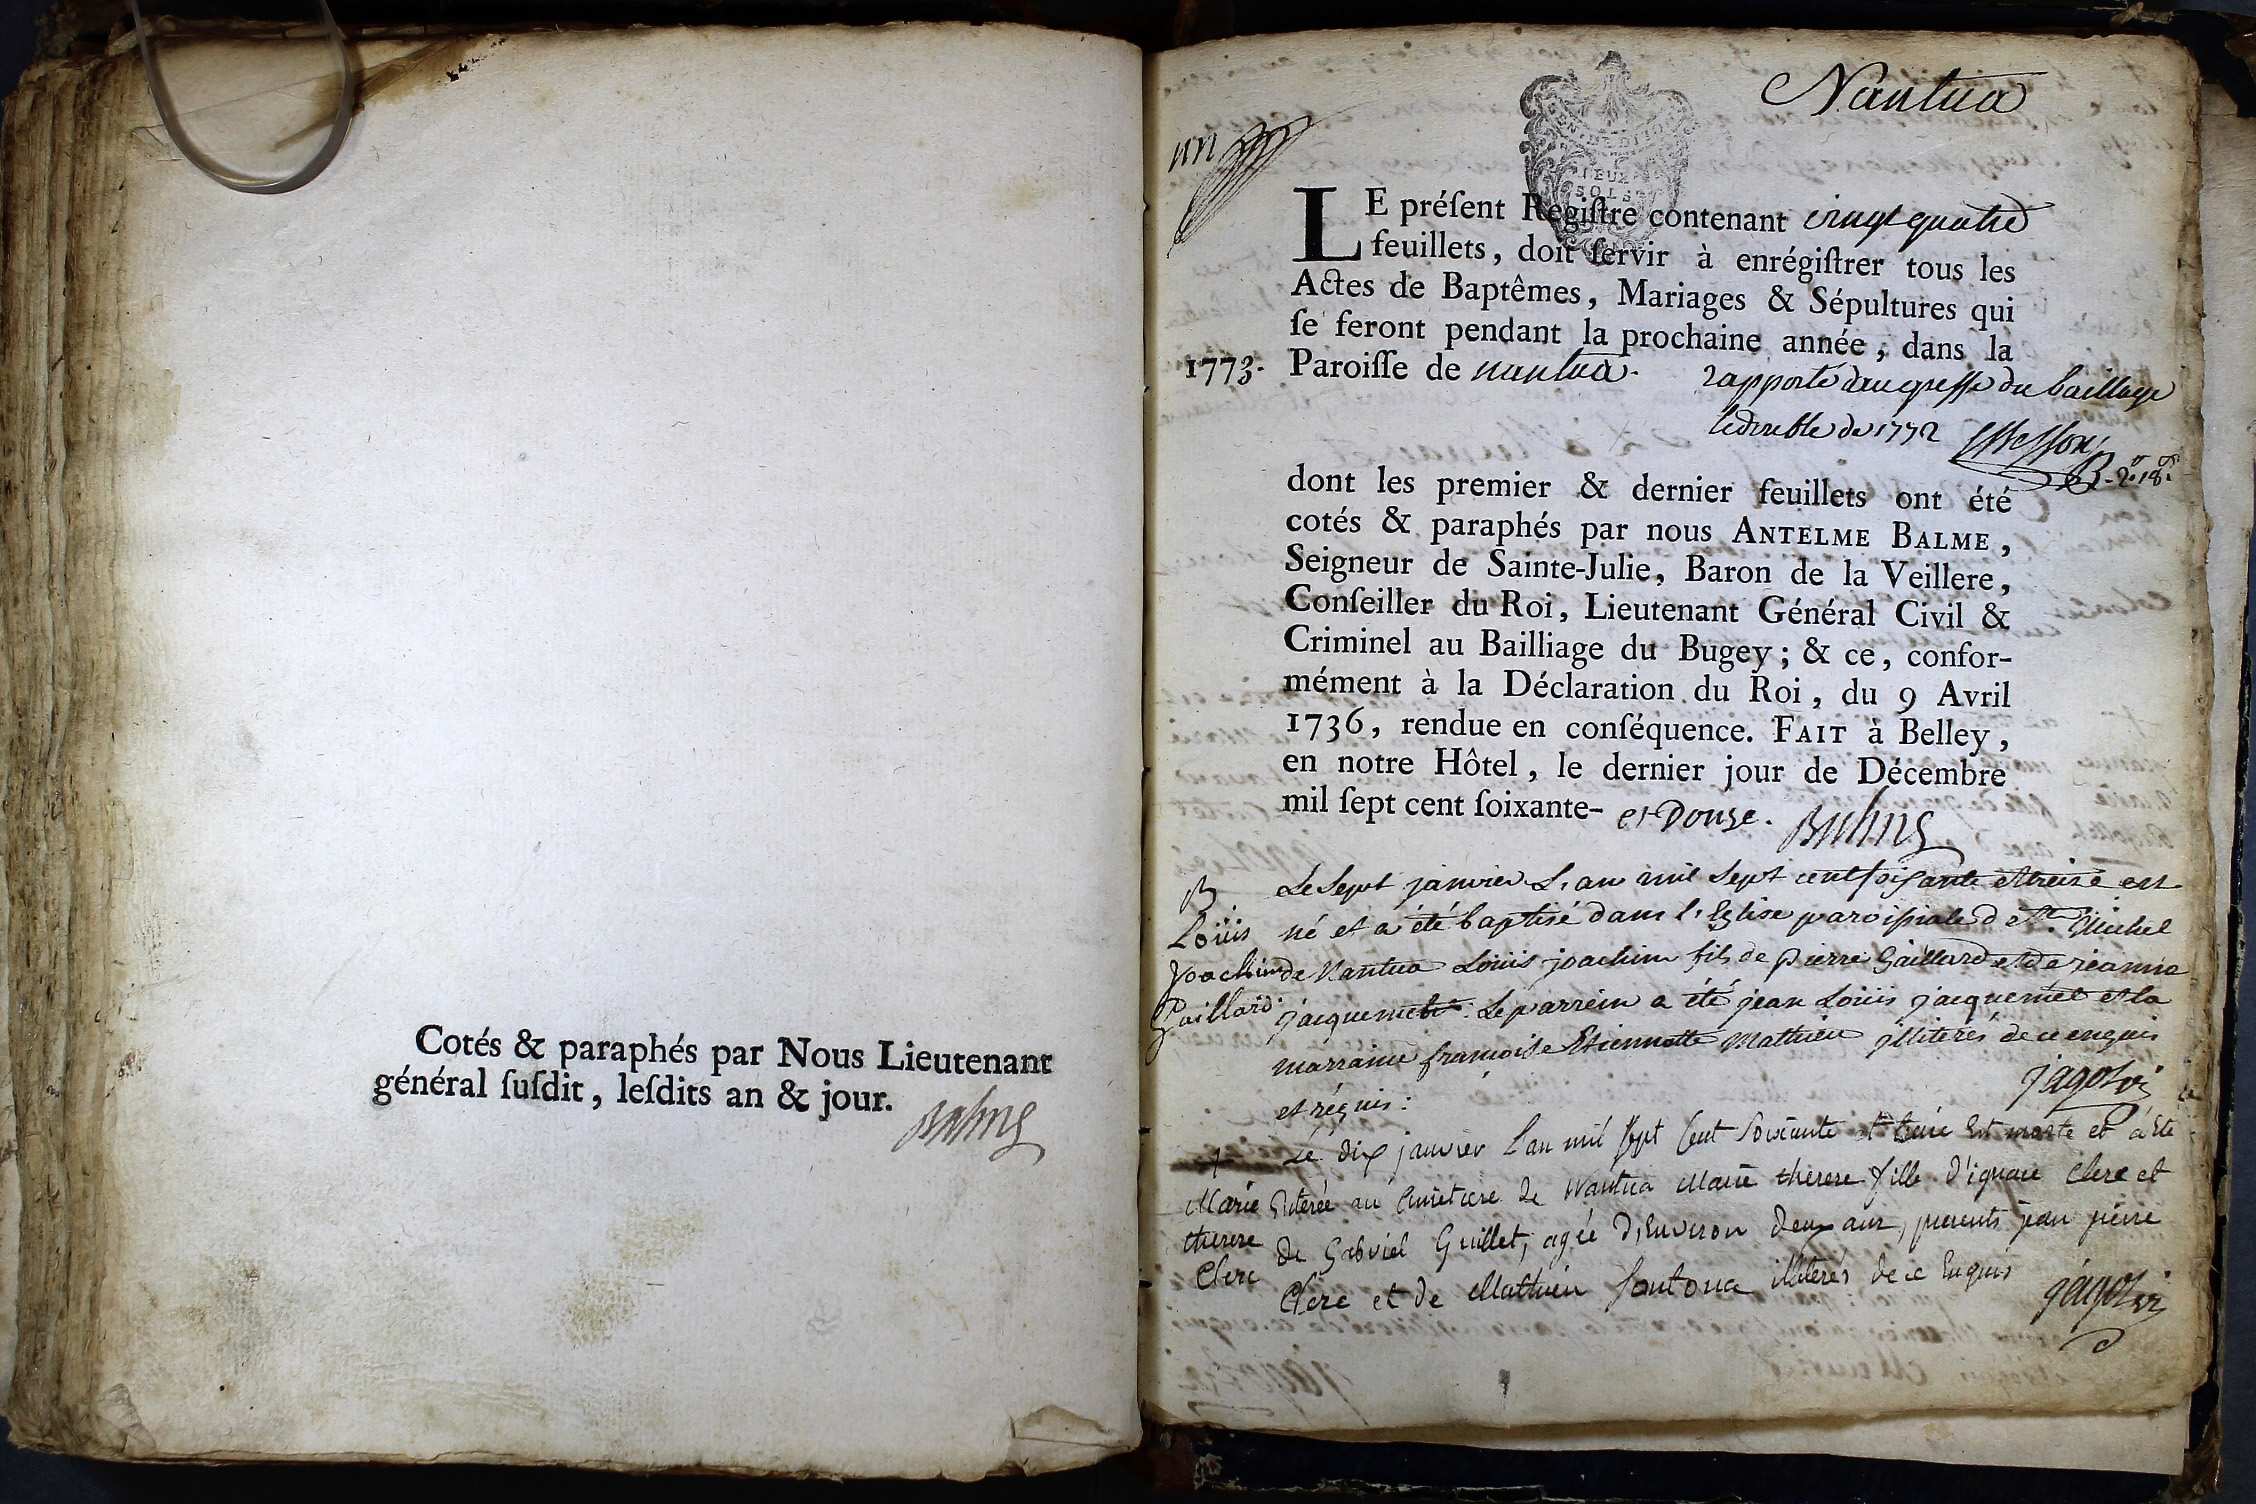 Cotés & paraphés par Nous Lieutenant
général ſuſdit, leſdits an & jour.
Balme
Nantua
un
DEUX
SOLS
LE préſent Regiſtre contenant vingt quatre
feuillets, doit ſervir à enrégiſtrer tous les
Actes de Baptêmes, Mariages & Sépultures qui
ſe feront pendant la prochaine année, dans la
1773. Paroiſſe de nantua.
rapporté au greffe du bailliage
le double de 1772
dont les premier & dernier feuillets ont été
cotés & paraphés par nous ANTELME BALME,
Seigneur de Sainte-Julie, Baron de la Veillere,
Conſeiller du Roi, Lieutenant Général Civil &
Criminel au Bailliage du Bugey; & ce, confor-
mément à la Déclaration du Roi, du 9 Avril
1736, rendue en conſéquence. FAIT à Belley,
en notre Hôtel, le dernier jour de Décembre
mil ſept cent ſoixante- et Douze. Balme
B
Loüis
Joachim
Gaillard
Le Sept janvier L'an mil Sept cent soixante et treize est
né et a été baptisé dans l'Eglise paroissiale de St. Michel
de Nantua Loüis joachim fils de pierre Gaillard et de jeanne
jacquemet: Le parrein a été jean Loüis jacquemet et la
marraine françoise Etiennette Mathieu illiterés de ce enquis
et réquis:
jagot vi
Marie
therese
Clerc
Le dix janvier L'an mil sept Cent Soixante et treize Est morte et a été
Enterée au Cimetiere de Nantua Marie therese fille d'ignace Clerc et
de Gabriel Guillet, agée d'Environ deux ans, presents jean pierre
Clerc et de Mathieu illiterés de ce Enquis
jagot vi